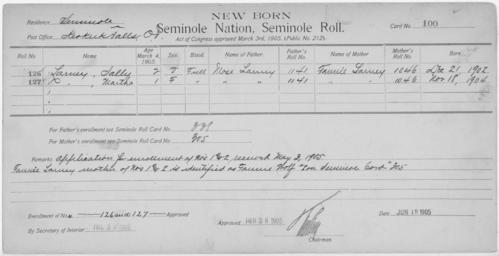 NEW BORN
Residence Seminole
Seminole Nation, Seminole Roll.
Card No. 100
Post Office Keokuk Falls, O.T.
Act of Congress approved March 3rd, 1905, (Public No. 212).
Roll No. NAME Age March 4, 1905. Sex. Blood. Name of Father. Father's Roll No. Name of Mother Mother's Roll No. Born.
126 Larney, Sally 2 F Full Mose Larney 1141 Fannie Larney 1046 Dec 21 1902
127 " , Martha 1 F " " " 1141 " " 1046 Nov 18, 1904
For Father's enrollment see Seminole Roll Card No.
For Mother's enrollment see Seminole Roll Card No. 305
Remarks Application for enrollment of Nos 1 & 2 received May 2, 1905
Fannie Larney mother of Nos 1 & 2 is identified as Fannie Wolf on Seminole Card 305
Enrollment of Nos 126 and 127 Approved
By Secretary of Interior
Approved 1905
Chairman
Date JUN 1905